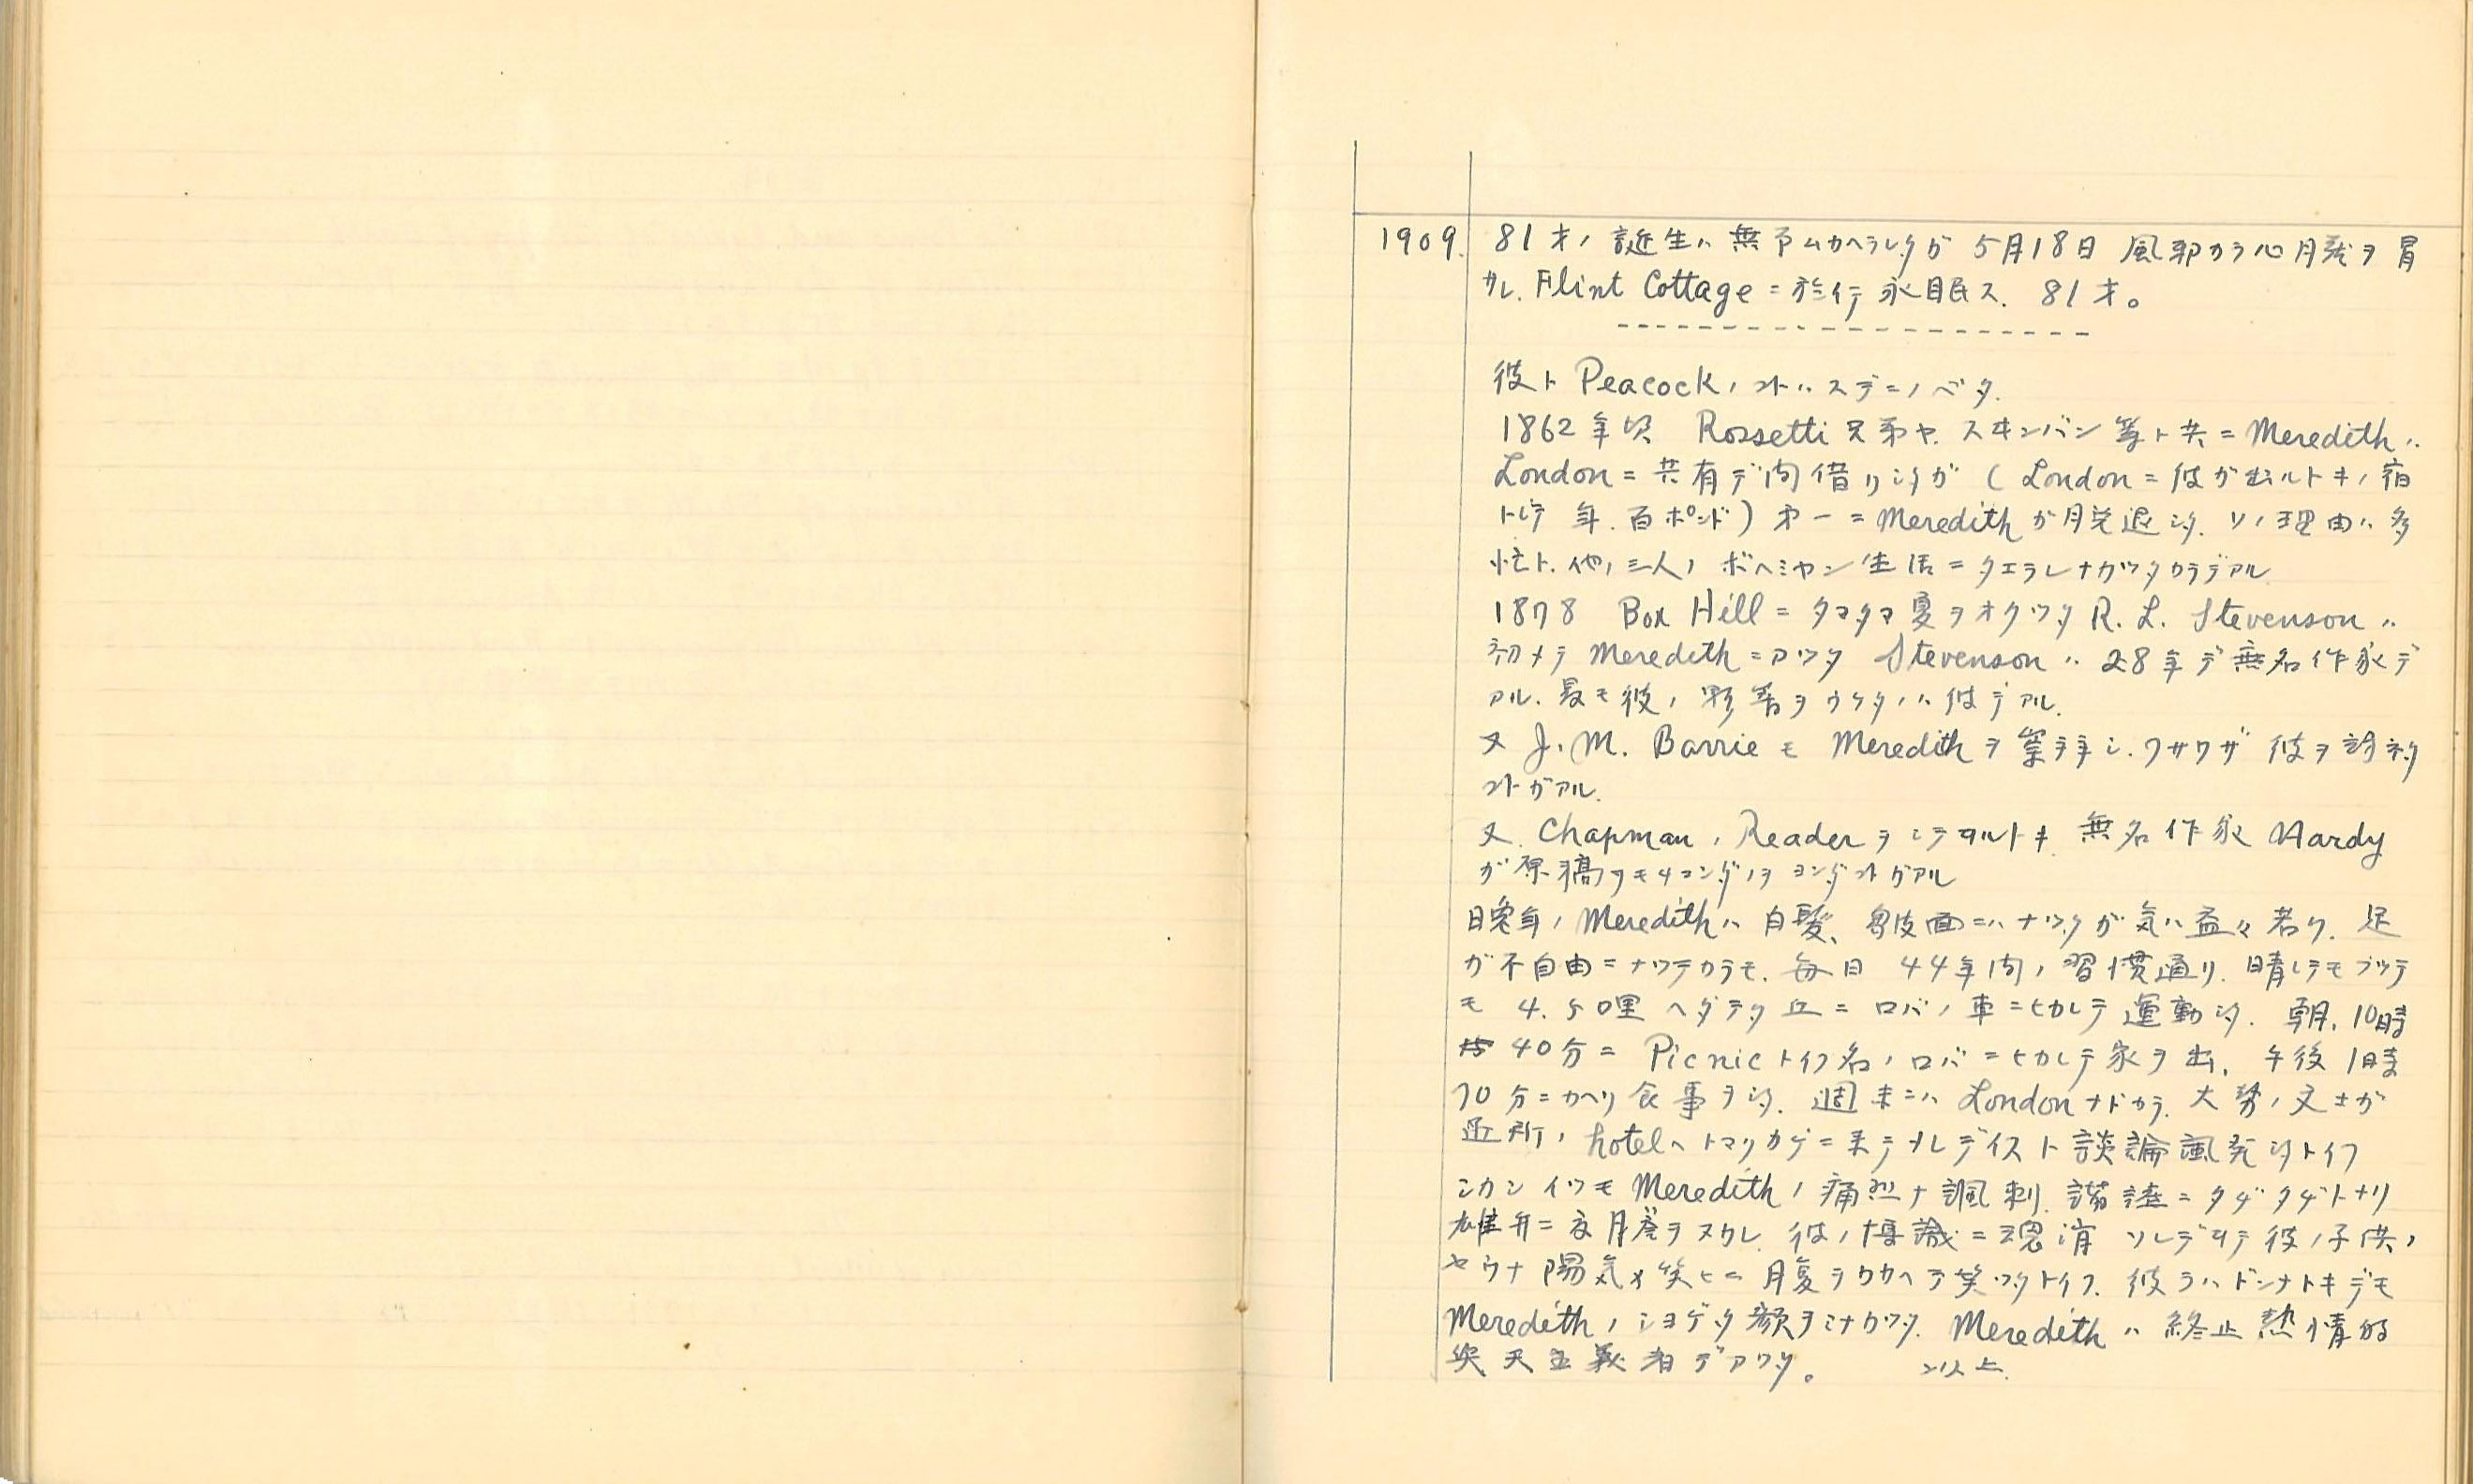 1909. 81才ノ誕生ハ無事ムカヘラレタガ 5月18日 風邪カラ心臓ヲ冒
サレ. Flint Cottage ニ於テ永眠ス. 81才。
彼ト Peacock ノコトハ スデニノベタ.
1862年頃 Rossetti 兄弟ヤ. スヰンバン等ト共ニ Meredith ハ
London ニ共有デ間借リシタガ ( London ニ彼ガ出ルトキノ宿
トシテ 年. 百ポンド) 才一ニ Meredith ガ脱退シタ. ソノ理由ハ多
忙ト. 他ノ三人ノ ボヘミヤン生活ニタエラレナカツタカラデアル
1878 Box Hill ニ タマタマ夏ヲオクツタ R. L. Stevenson ハ
初メテ Meredith ニアツタ Stevenson ハ 28年デ無名作家デ
アル. 最モ彼ノ影響ヲウケタノハ彼デアル.
又 J. M. Barrie モ Meredith ヲ崇拝シ. ワザワザ 彼ヲ訪ネタ
コトガアル.
又. Chapman ノ Reader ヲシテヰルトキ. 無名作家 Hardy
ガ原稿ヲモチコンダノヲ ヨンダコトガアル
晩年ノ Meredith ハ 白髪、皺面ニハナツタガ 気ハ益々若ク. 足
ガ不自由ニナツテカラモ. 毎日 44年間ノ習慣通リ. 晴レテモフツテ
モ 4. 5哩 ヘダテタ丘ニ ロバノ車ニヒカレテ運動シタ. 朝. 10時
40分ニ Picnic トイフ名ノロバニヒカレテ家ヲ出. 午後1時
10分ニカヘリ食事ヲシタ. 週末ニハ London ナドカラ. 大勢ノ文士ガ
近所ノ hotel ヘトマリガケニ来テメレデイスト談論風発シタトイフ
シカシ イツモ Meredith ノ痛烈ナ諷刺. 諧謔ニタヂタヂトナリ
雄弁ニ度膽ヲヌカレ. 彼ノ博識ニ魂消 ソレデヰテ彼ノ子供ノ
ヤウナ陽気ナ笑ヒニ 腹ヲカカヘテ笑ツタトイフ. 彼ラハドンナトキデモ
Meredith ノシヨゲタ顔ヲミナカツタ. Meredith ハ 終止熱情的
楽天主義者デアツタ。 以上.